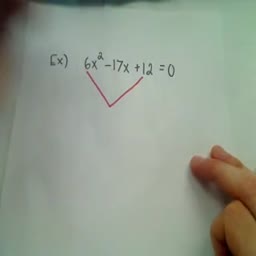 Ex) 6x²-17x+12=0